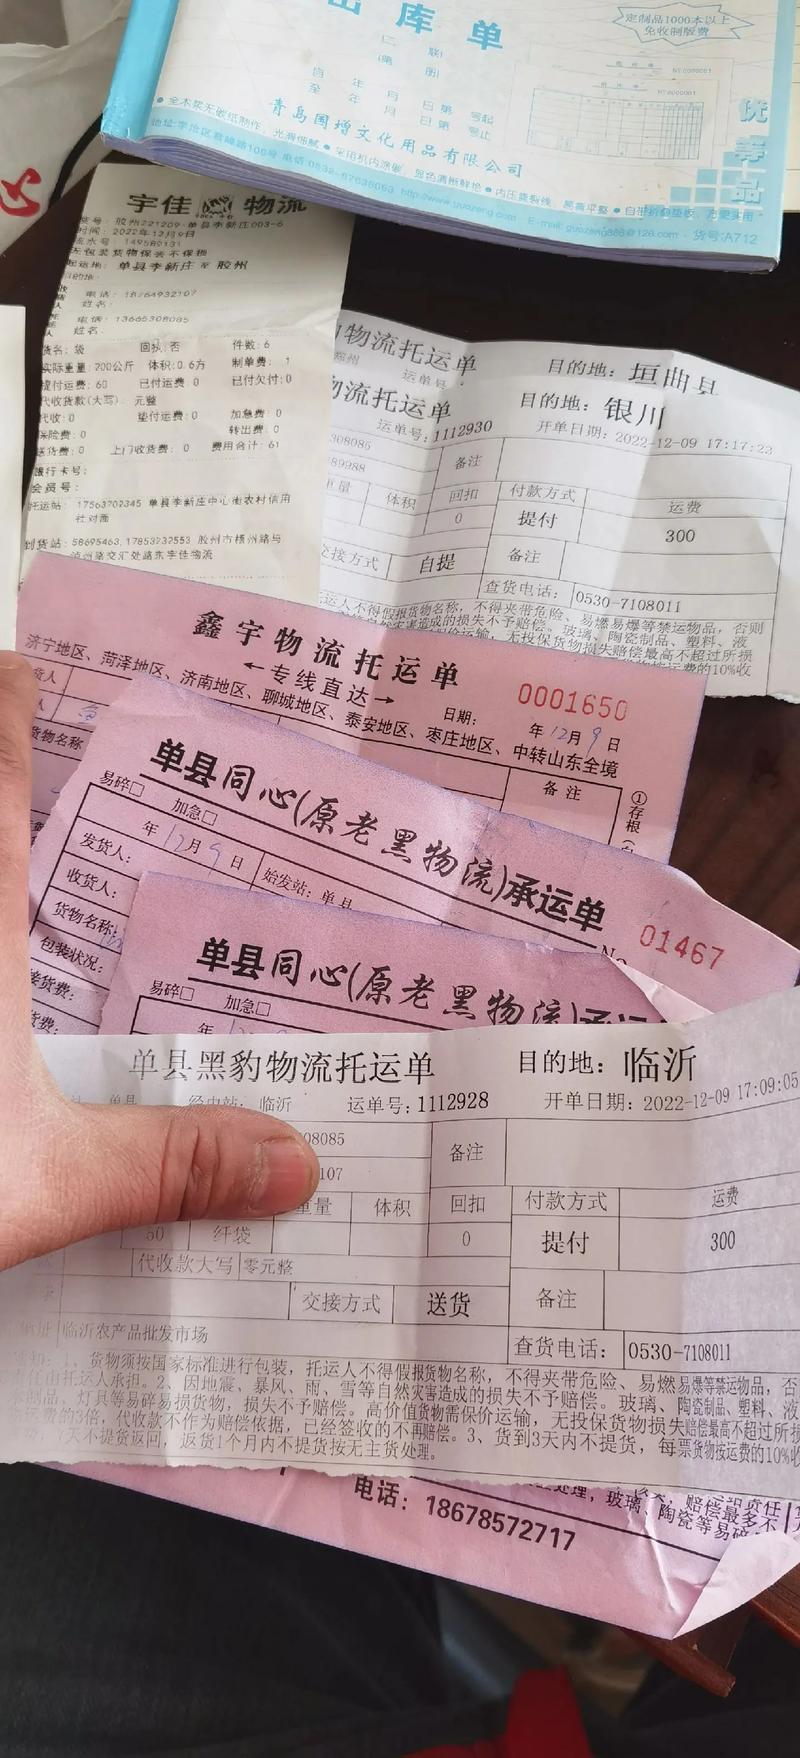 出库单
定制品1000本以上
免收制版费
(二联)
自 年 月 日第 号起
至 年 月 日第 号止
青岛国增文化用品有限公司
优等品
货号:A712
宇佳 物流
单号: 胶州221209-单县李新庄003-6
时间: 2022年12月9日
流水号: 149580131
无包装货物保丢不保损
起运地: 单县李新庄 至 胶州
目的地:
电话: 18764932107
姓名:
电话: 13665308085
姓名:
货名: 袋 回执: 否 件数: 6
实际重量: 200公斤 体积: 0.6方 制单费: 1
提付运费: 60 已付运费: 0 已付欠付: 0
代收货款(大写): 元整
代收: 0 垫付运费: 0 加急费: 0
保险费: 0 转出费: 0
送货费: 0 上门收货费: 0 费用合计: 61
银行卡号:
会员号:
托运站: 17563702345 单县李新庄中心街农村信用
社对面
到货站: 58695463,17853232553 胶州市梧州路与
路交汇处路东宇佳物流
物流托运单 目的地: 垣曲县
运单号
物流托运单 目的地: 银川
运单号: 1112930 开单日期: 2022-12-09 17:17:23
308085
89988
备注
重量 体积 回扣 付款方式 运费
0 提付 300
交接方式 自提 备注
查货电话: 0530-7108011
托运人不得假报货物名称, 不得夹带危险、易燃易爆等禁运物品, 否则
灾害造成的损失不予赔偿。玻璃、陶瓷制品、塑料、液
保价运输, 无投保货物损失赔偿最高不超过所损
运费的10%收
鑫宇物流托运单
←专线直达→
0001650
济宁地区、菏泽地区、济南地区、聊城地区、泰安地区、枣庄地区、中转山东全境
日期: 年 12月 9日
货人
货物名称
备注
①存根
单县同心(原老黑物流)承运单
易碎□ 加急□
No 01467
年 12月 9日 始发站: 单县
发货人:
收货人:
货物名称:
包装状况:
接货费:
单县同心(原老黑物流)承运
易碎□ 加急□
年
单县黑豹物流托运单 目的地: 临沂
单县 经由站: 临沂 运单号: 1112928 开单日期: 2022-12-09 17:09:05
08085
107
备注
重量 体积 回扣 付款方式 运费
50 纤袋 0 提付 300
代收款大写 零元整
交接方式 送货 备注
临沂农产品批发市场
查货电话: 0530-7108011
1、货物须按国家标准进行包装, 托运人不得假报货物名称, 不得夹带危险、易燃易爆等禁运物品, 否
任由托运人承担。2、因地震、暴风、雨、雪等自然灾害造成的损失不予赔偿。玻璃、陶瓷制品、塑料、液
制品、灯具等易碎易损货物, 损失不予赔偿。高价值货物需保价运输, 无投保货物损失赔偿最高不超过所损
运费的3倍, 代收款不作为赔偿依据, 已经签收的不再赔偿。3、货到3天内不提货, 每票货物按运费的10%收
7天不提货返回, 返货1个月内不提货按无主货处理。
玻璃、陶瓷等易碎
电话: 18678572717